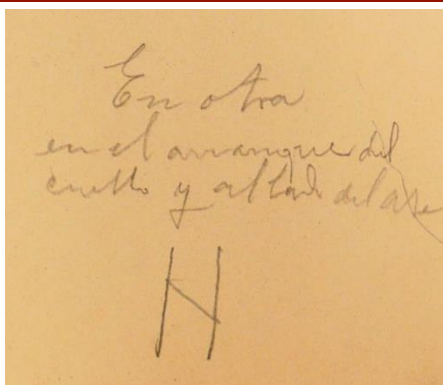 En otra
en el arranque del
cuello y al lado del asa
N